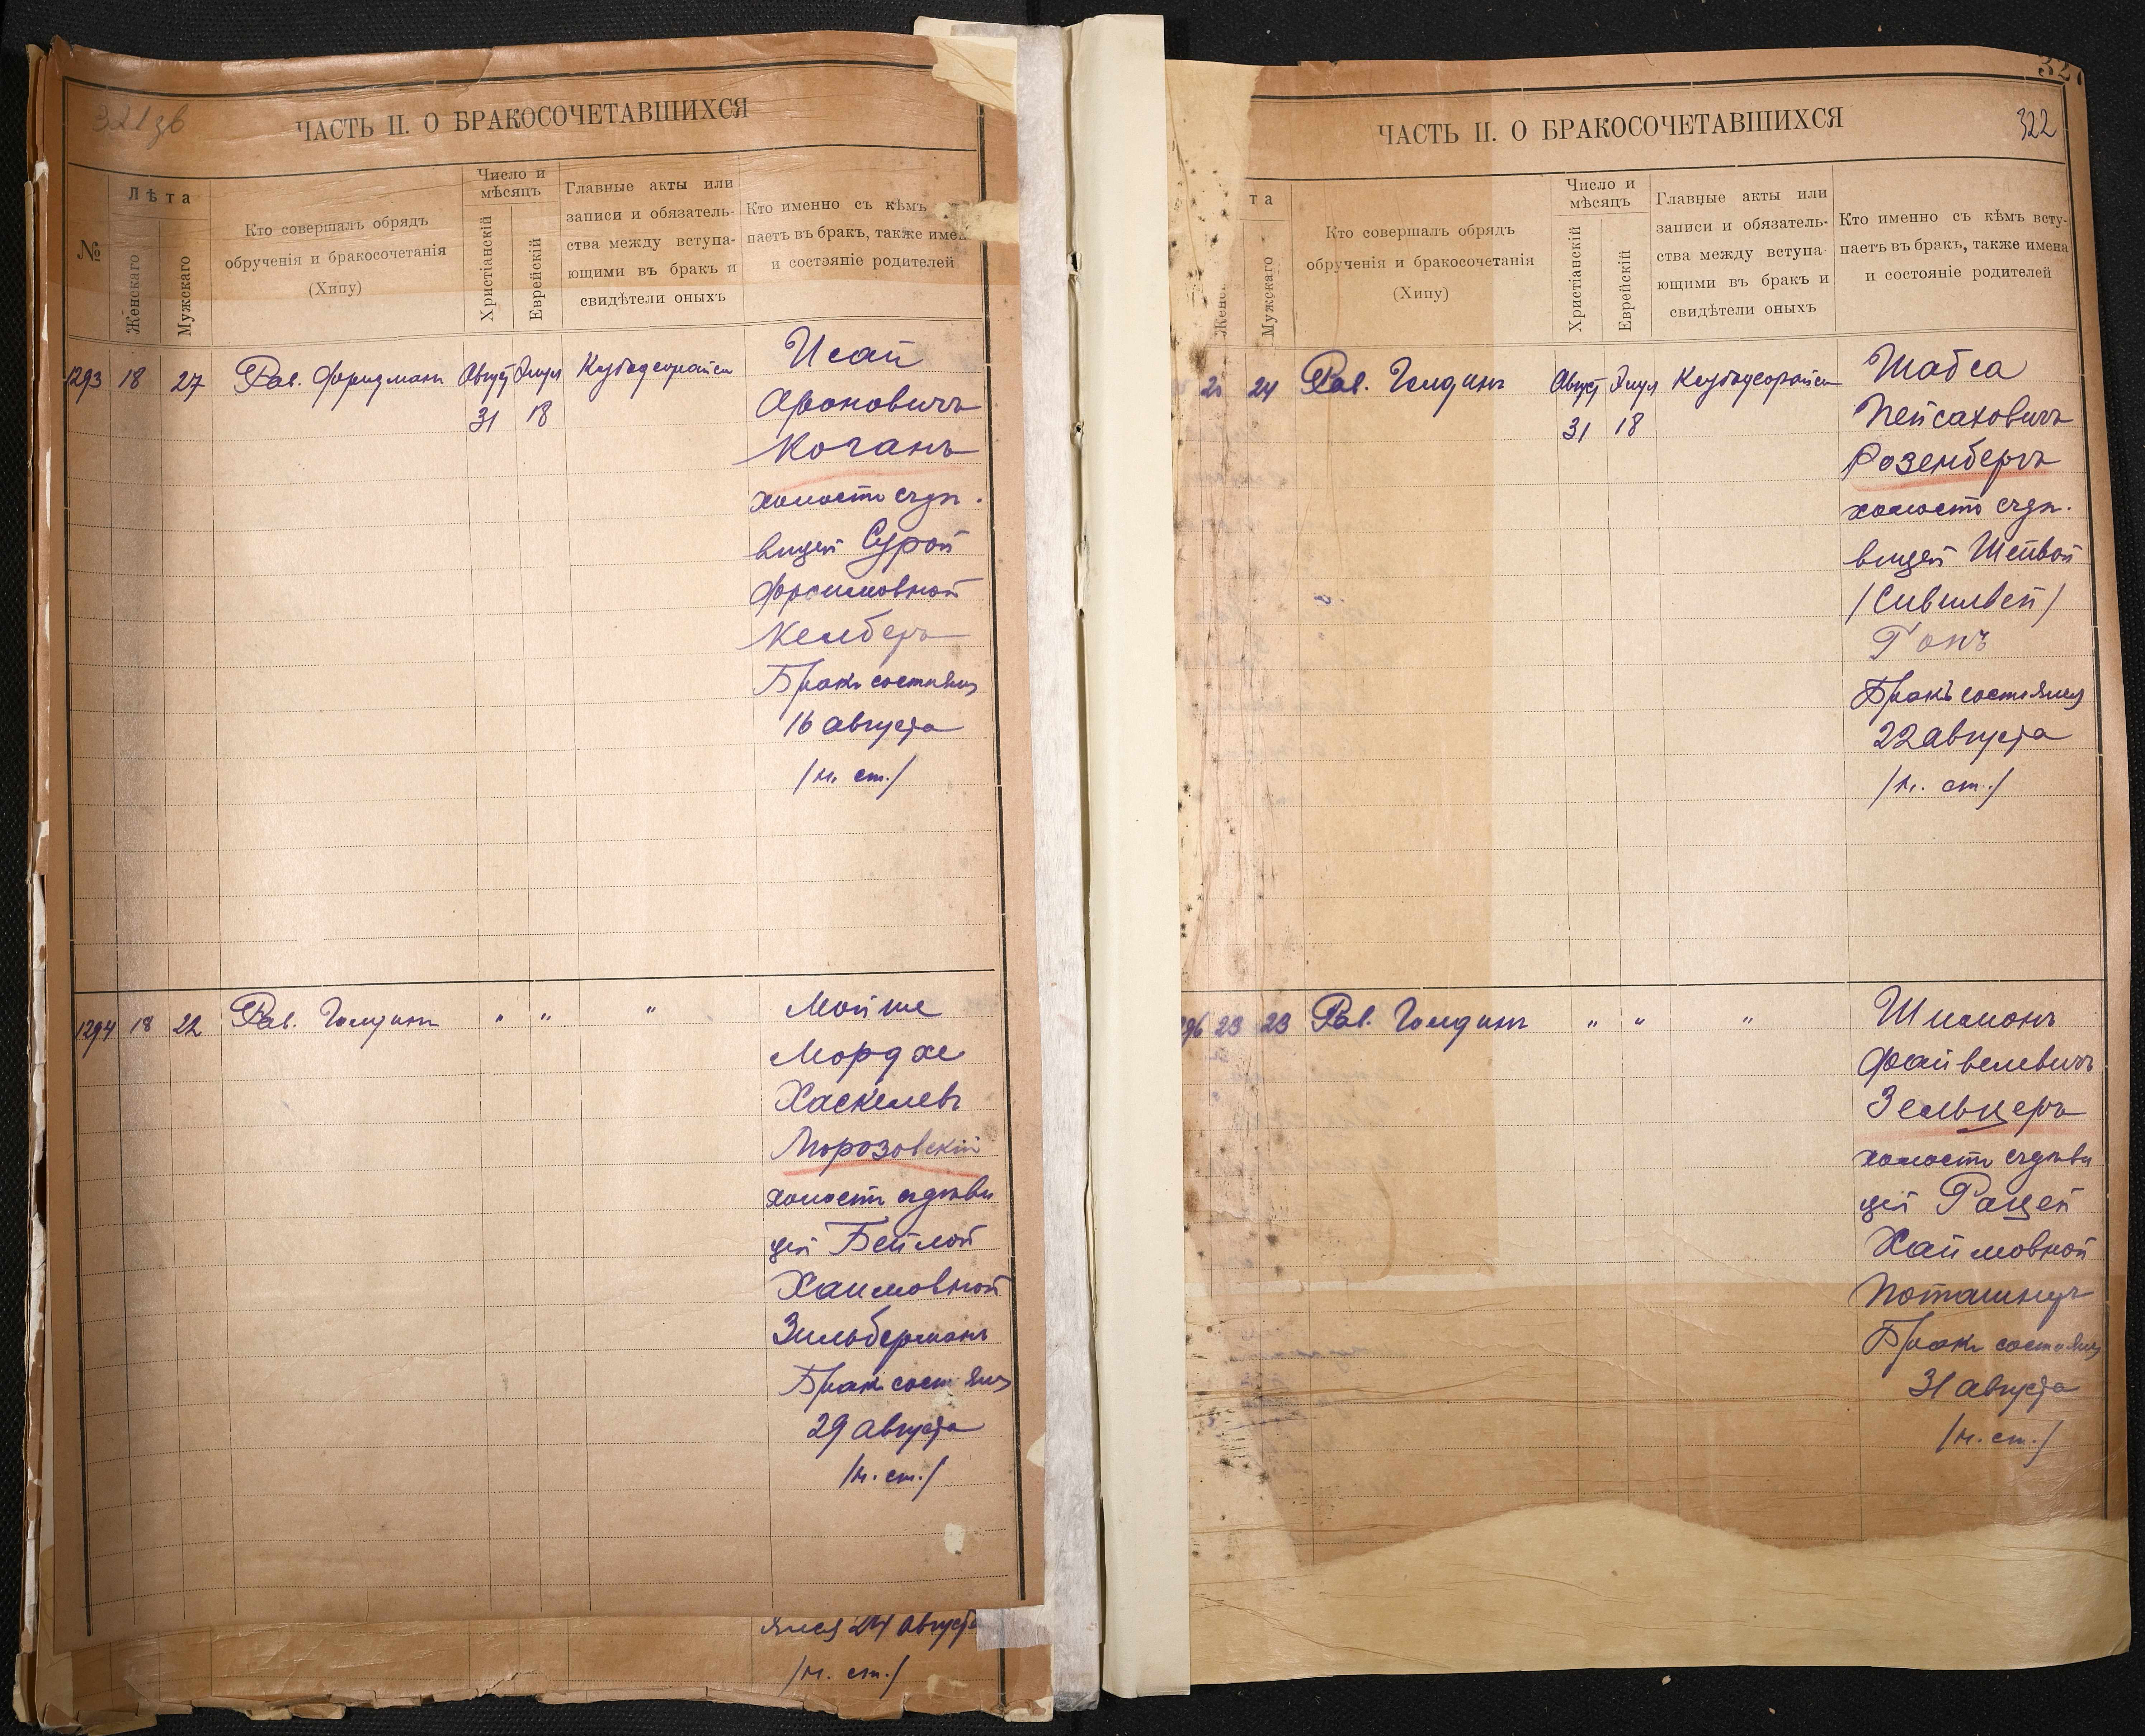 321 зв
ЧАСТЬ II. О БРАКОСОЧЕТАВШИХСЯ
№
Лѣта
Женскаго
Мужскаго
Кто совершалъ обрядъ
обрученія и бракосочетанія
(Хипу)
Число и
мѣсяцъ
Христіанскій
Еврейскій
Главные акты или
записи и обязатель-
ства между вступа-
ющими въ бракъ и
свидѣтели оныхъ
Кто именно съ кѣмъ
паетъ въ бракъ, также имен
и состэяніе родителей
1293 18 27 Рав. Фридманъ Август Элул
31 18
Исай
Ароновичъ
Коганъ
холостъ съ дѣ-
вицей Сурой
Фроимовной
Келберъ
Бракъ состоялся
16 августа
/н. ст./
1294 18 22 Рав. Голдинъ " " "
Мойше
Мордхе
Хаскелевъ
Морозовскій
холостъ съ дѣви
цей Бейлой
Хаимовной
Зильберманъ
Бракъ состоялся
29 августа
/н. ст./
ялся 24 августа
/н. ст./
322
ЧАСТЬ II. О БРАКОСОЧЕТАВШИХСЯ
та
Женс
Мужскаго
Кто совершалъ обрядъ
обрученія и бракосочетанія
(Хипу)
Число и
мѣсяцъ
Христіанскій
Еврейскій
Главные акты или
записи и обязатель-
ства между вступа
ющими въ бракъ и
свидѣтели оныхъ
Кто именно съ кѣмъ всту-
паетъ въ бракъ, также имена
и состояніе родителей
21 24 Рав. Голдинъ Август Элул
31 18
Шабса
Пейсаховичъ
Розенбергъ
холостъ съ дѣ-
вицей Шейвой
/Сивилвей/
Гонъ
Бракъ состоялся
22 августа
/н. ст./
96 23 23 Рав. Голдинъ " " "
Шимонъ
Файвелевичъ
Зельцеръ
холостъ съ дѣви
цей Рацей
Хаимовной
Поташнеръ
Бракъ состоялся
31 августа
/н. ст./